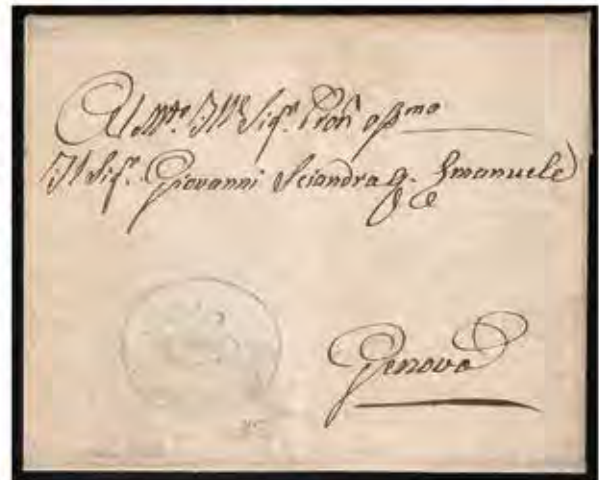 Al M.to Ill.e Sig.r Pron oss.mo
Il Sig.r Giovanni Sciandra q. Emanuele
Genova